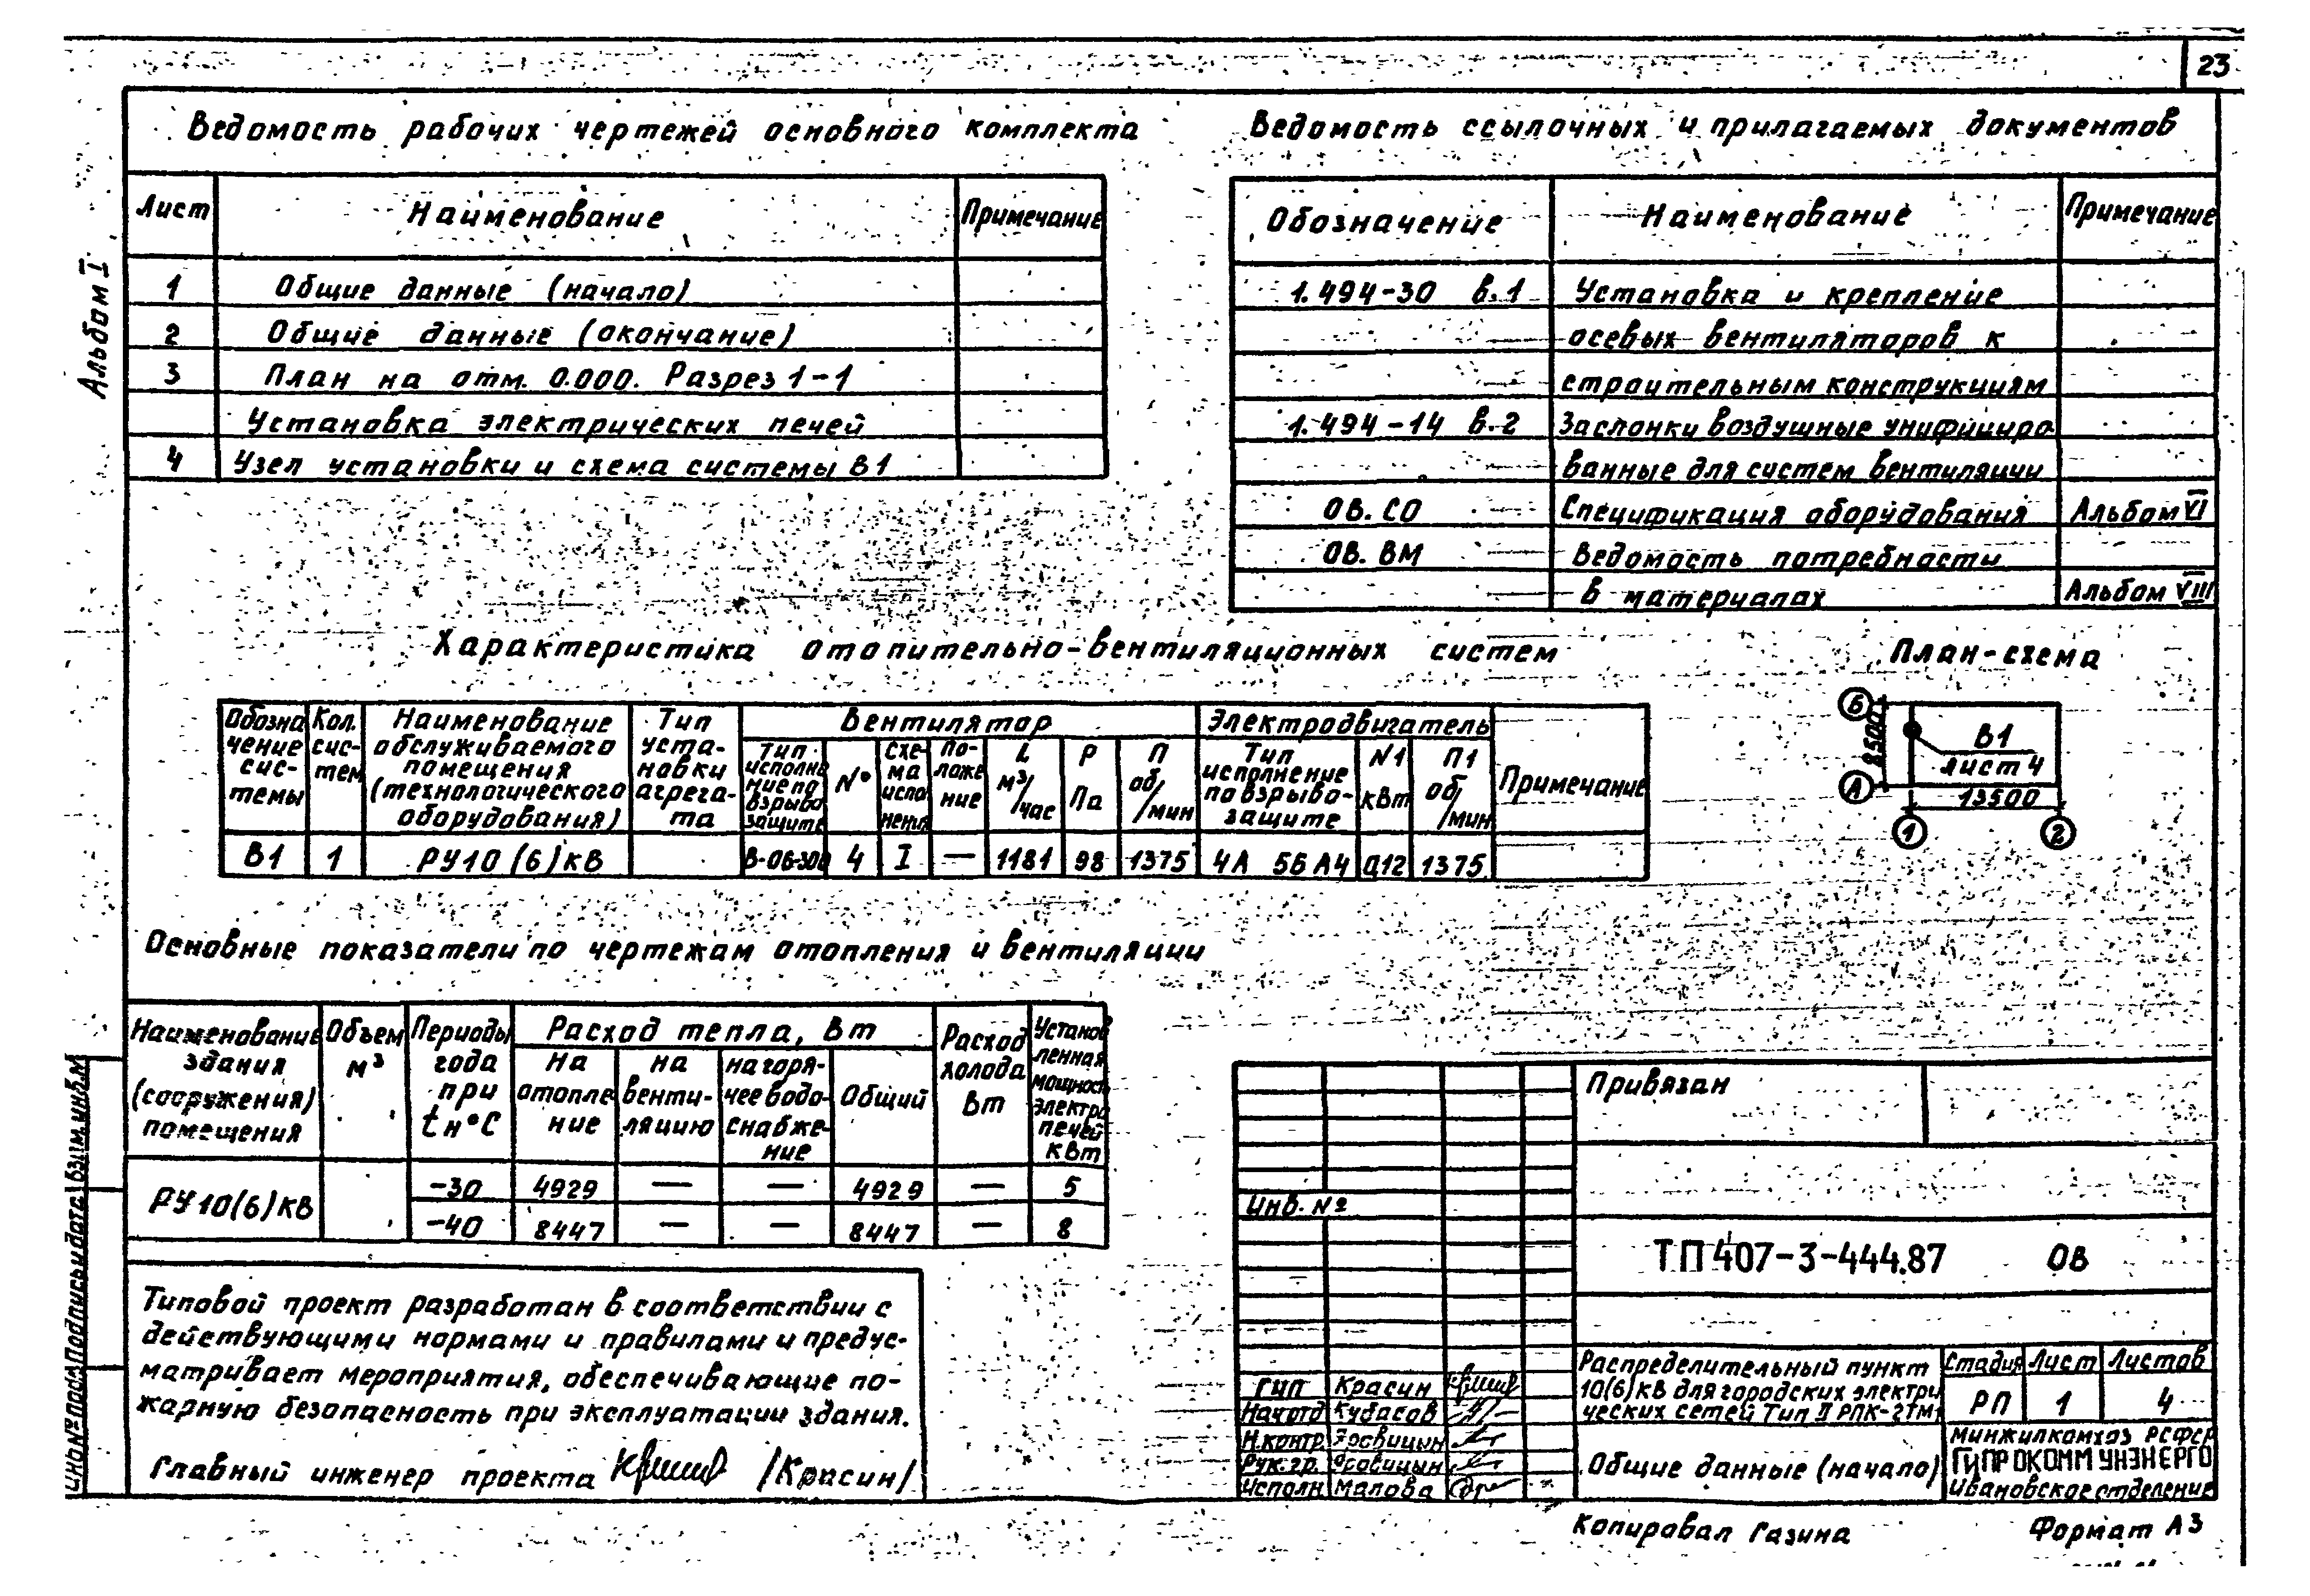 23
Альбом I
Ведомость рабочих чертежей основного комплекта
Лист Наименование Примечание
1 Общие данные (начало)
2 Общие данные (окончание)
3 План на отм. 0.000. Разрез 1-1
Установка электрических печей
4 Узел установки и схема системы В1
Ведомость ссылочных и прилагаемых документов
Обозначение Наименование Примечание
1.494-30 в.1 Установка и крепление
осевых вентиляторов к
строительным конструкциям
1.494-14 в.2 Заслонки воздушные унифициро
ванные для систем вентиляции
ОВ.СО Спецификация оборудования Альбом VI
ОВ.ВМ Ведомость потребности
в материалах Альбом VIII
Характеристика отопительно-вентиляционных систем
Обозна
чение
сис-
темы
Кол.
сис-
тем
Наименование
обслуживаемого
помещения
(технологического
оборудования)
Тип
уста-
новки
агрега-
та
Вентилятор
Тип
исполне
ние по
взрыво
защите
№
Схе-
ма
испо
нения
По-
ложе
ние
L
м³/
час
Р
Па
П
об
/мин
Электродвигатель
Тип
исполнение
по взрыво-
защите
N1
кВт
П1
об
/мин
Примечание
В1 1 РУ10(6)кВ В-06-300 4 I — 1181 98 1375 4А 56А4 0,12 1375
План-схема
Б
8500
А
В1
лист 4
13500
1 2
Основные показатели по чертежам отопления и вентиляции
Наименование
здания
(сооружения)
помещения
Объем
м³
Периоды
года
при
tн°С
Расход тепла, Вт
на
отопле
ние
на
венти-
ляцию
на горя-
чее водо-
снабже-
ние
Общий
Расход
холода
Вт
Установ
ленная
мощность
электро
печей
кВт
РУ10(6)кВ
-30 4929 — — 4929 — 5
-40 8447 — — 8447 — 8
Типовой проект разработан в соответствии с
действующими нормами и правилами и предус-
матривает мероприятия, обеспечивающие по-
жарную безопасность при эксплуатации здания.
Главный инженер проекта /Красин/
Инв.№ подл. Подпись и дата Взам.инв.№
Привязан
Инв. №
ТП 407-3-444.87 ОВ
ГИП Красин
Нач.отд Кубасов
Н.контр.
Рук.гр.
Исполн Малова
Распределительный пункт
10(6)кВ для городских электри
ческих сетей Тип II РПК-2ТМ
Стадия Лист Листов
РП 1 4
Общие данные (начало)
Минжилкомхоз РСФСР
ГИПРОКОММУНЭНЕРГО
Ивановское отделение
Копировал Газина
Формат А3